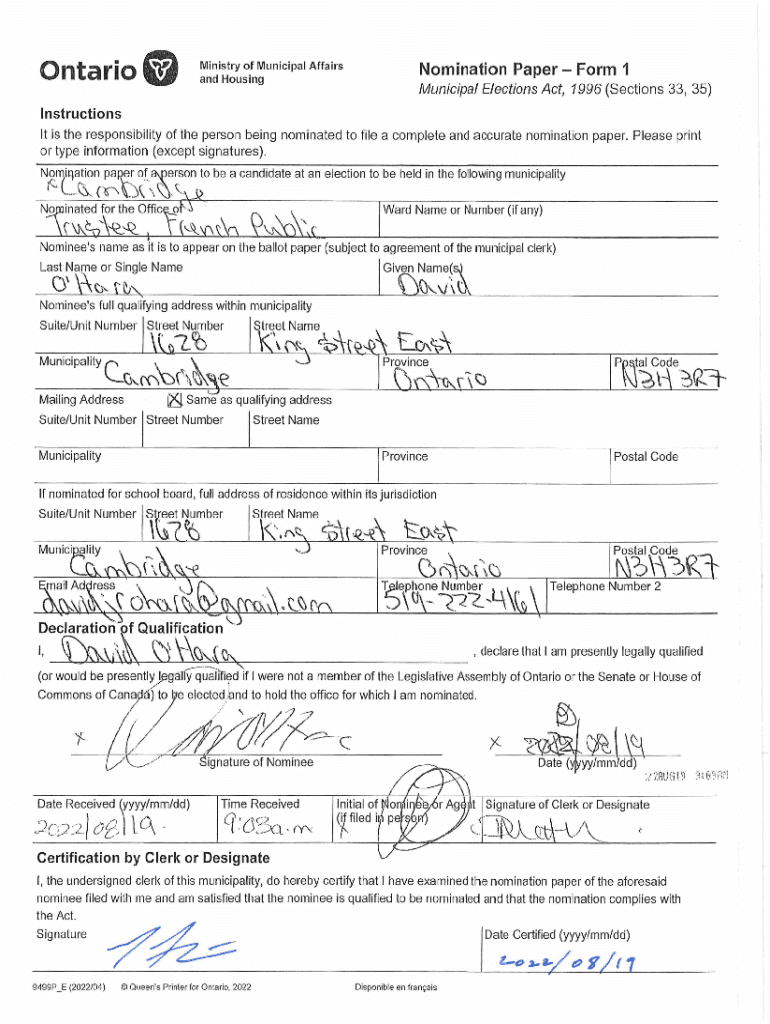 Ontario
Ministry of Municipal Affairs
and Housing
Nomination Paper – Form 1
Municipal Elections Act, 1996 (Sections 33, 35)
Instructions
It is the responsibility of the person being nominated to file a complete and accurate nomination paper. Please print
or type information (except signatures).
Nomination paper of a person to be a candidate at an election to be held in the following municipality
Cambridge
Nominated for the Office of Ward Name or Number (if any)
Trustee, French Public
Nominee's name as it is to appear on the ballot paper (subject to agreement of the municipal clerk)
Last Name or Single Name Given Name(s)
O'Hara David
Nominee's full qualifying address within municipality
Suite/Unit Number Street Number Street Name
1628 King Street East
Municipality Province Postal Code
Cambridge Ontario N3H 3R7
Mailing Address X Same as qualifying address
Suite/Unit Number Street Number Street Name
Municipality Province Postal Code
If nominated for school board, full address of residence within its jurisdiction
Suite/Unit Number Street Number Street Name
1628 King Street East
Municipality Province Postal Code
Cambridge Ontario N3H 3R7
Email Address Telephone Number Telephone Number 2
davidjrohara@gmail.com 519-222-4161
Declaration of Qualification
I, David O'Hara , declare that I am presently legally qualified
(or would be presently legally qualified if I were not a member of the Legislative Assembly of Ontario or the Senate or House of
Commons of Canada) to be elected and to hold the office for which I am nominated.
x x 2022/08/19
Signature of Nominee Date (yyyy/mm/dd)
Date Received (yyyy/mm/dd) Time Received Initial of Nominee or Agent Signature of Clerk or Designate
(if filed in person)
2022/08/19 9:03a.m x
Certification by Clerk or Designate
I, the undersigned clerk of this municipality, do hereby certify that I have examined the nomination paper of the aforesaid
nominee filed with me and am satisfied that the nominee is qualified to be nominated and that the nomination complies with
the Act.
Signature Date Certified (yyyy/mm/dd)
2022/08/19
9499P_E (2022/04) © Queen's Printer for Ontario, 2022 Disponible en français